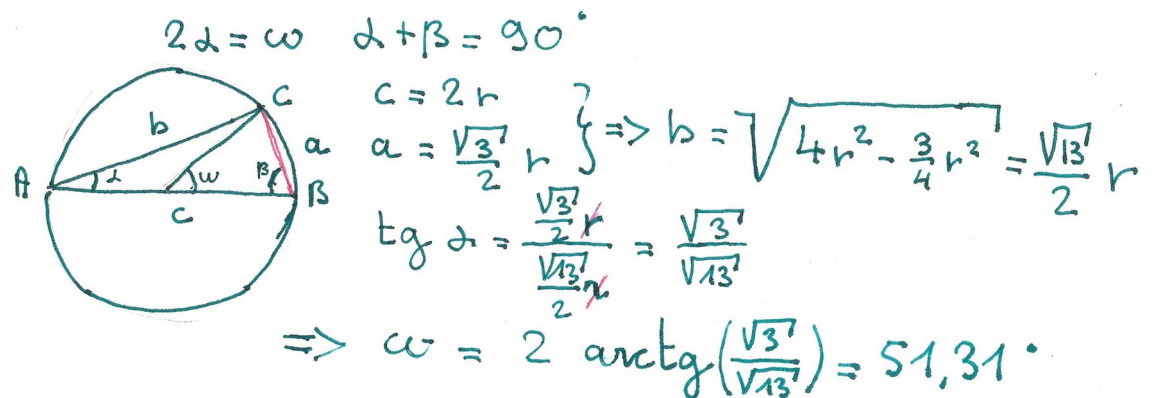 2α = ω α + β = 90°
C
b
a
A
α
ω
β
B
c
c = 2r
a = √3/2 r } => b = √(4r² - 3/4 r²) = √13/2 r
tg α = (√3/2 r)/(√13/2 r) = √3/√13
=> ω = 2 arctg(√3/√13) = 51,31°